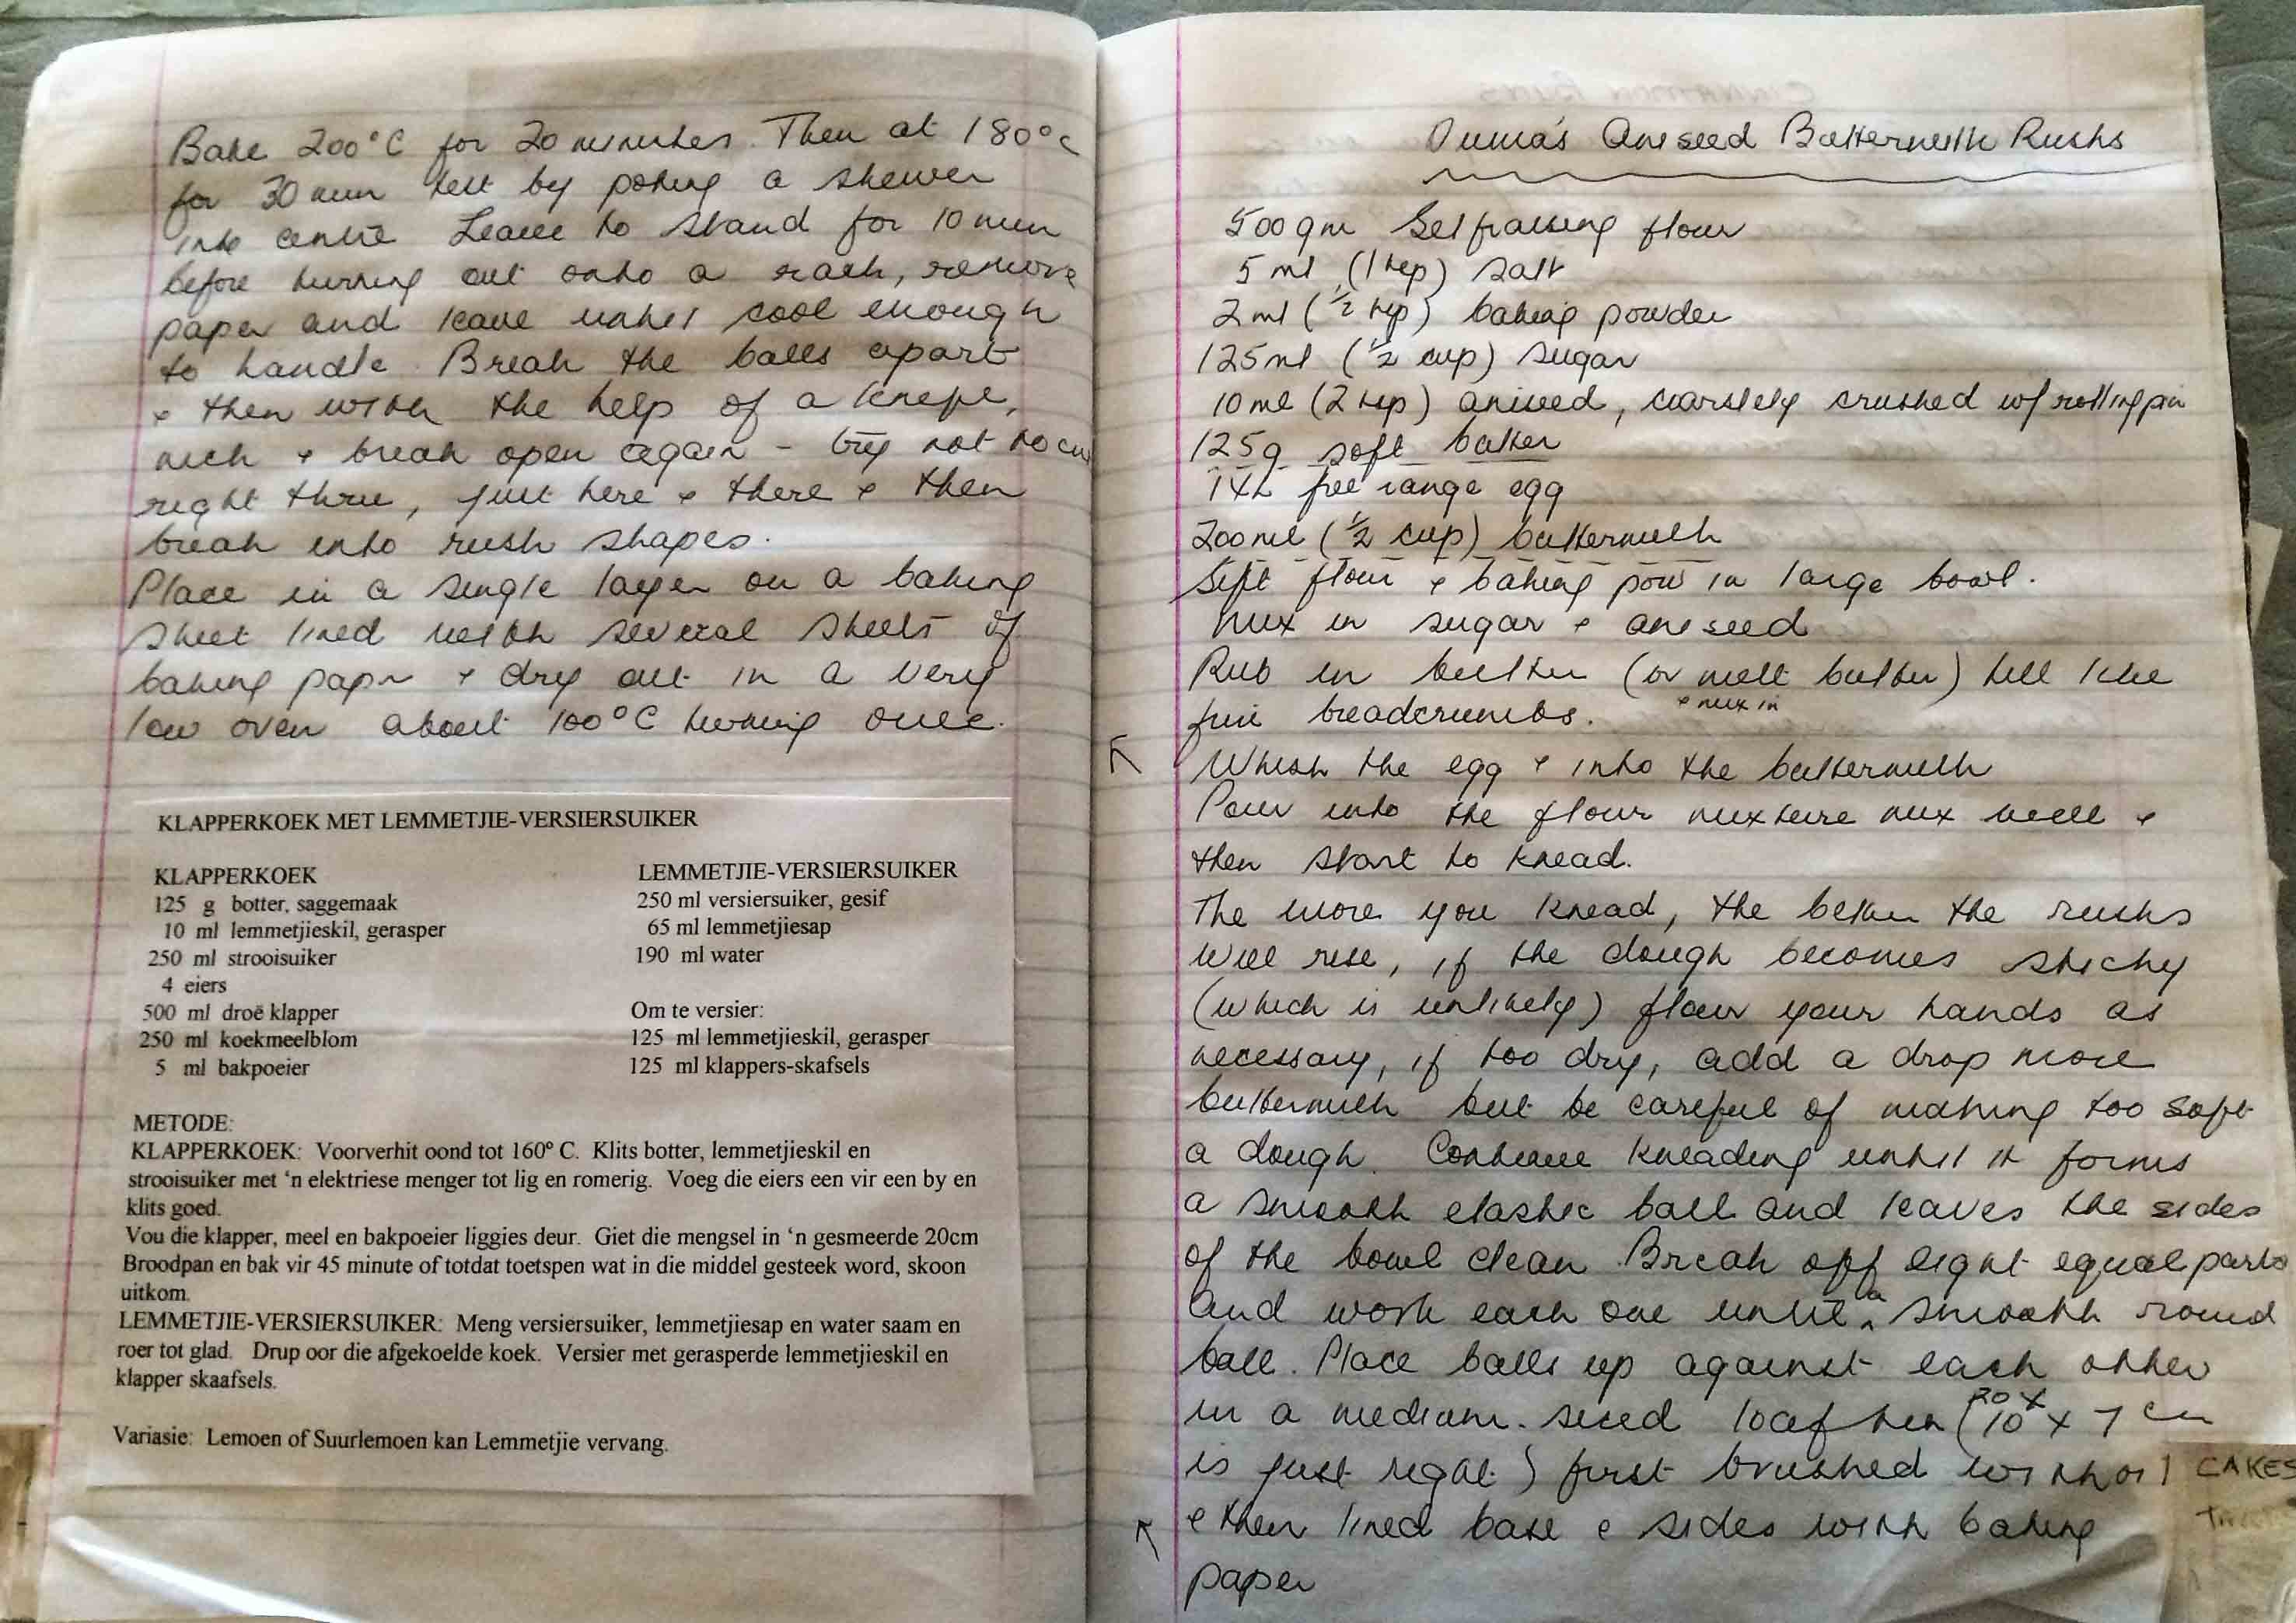 Bake 200°C for 20 minutes. Then at 180°C
for 30 min test by poking a skewer
into centre Leave to stand for 10 min
before turning out onto a rack, remove
paper and leave until cool enough
to handle. Break the balls apart
& then with the help of a knife,
nick & break open again - try not to cut
right thru, just here & there & then
break into rusk shapes.
Place in a single layer on a baking
sheet lined with several sheets of
baking paper & dry out in a very
low oven about 100°C turning once.
KLAPPERKOEK MET LEMMETJIE-VERSIERSUIKER
KLAPPERKOEK
125 g botter, saggemaak
10 ml lemmetjieskil, gerasper
250 ml strooisuiker
4 eiers
500 ml droë klapper
250 ml koekmeelblom
5 ml bakpoeier
LEMMETJIE-VERSIERSUIKER
250 ml versiersuiker, gesif
65 ml lemmetjiesap
190 ml water
Om te versier:
125 ml lemmetjieskil, gerasper
125 ml klappers-skafsels
METODE:
KLAPPERKOEK: Voorverhit oond tot 160° C. Klits botter, lemmetjieskil en
strooisuiker met 'n elektriese menger tot lig en romerig. Voeg die eiers een vir een by en
klits goed.
Vou die klapper, meel en bakpoeier liggies deur. Giet die mengsel in 'n gesmeerde 20cm
Broodpan en bak vir 45 minute of totdat toetspen wat in die middel gesteek word, skoon
uitkom.
LEMMETJIE-VERSIERSUIKER: Meng versiersuiker, lemmetjiesap en water saam en
roer tot glad. Drup oor die afgekoelde koek. Versier met gerasperde lemmetjieskil en
klapper skaafsels.
Variasie: Lemoen of Suurlemoen kan Lemmetjie vervang.
Ouma's Aniseed Buttermilk Rusks
500gm Selfraising flour
5 ml (1 tsp) salt
2 ml (½ tsp) baking powder
125ml (½ cup) sugar
10 ml (2 tsp) aniseed, coarsely crushed w/ rolling pin
125g soft butter
1XL free range egg
200ml (½ cup) buttermilk
Sift flour & baking pow in large bowl.
Mix in sugar & aniseed
Rub in butter (or melt butter) till like
& mix in
fine breadcrumbs.
Whisk the egg & into the buttermilk
Pour into the flour mixture mix well &
then start to knead.
The more you knead, the better the rusks
will rise, if the dough becomes sticky
(which is unlikely) flour your hands as
necessary, if too dry, add a drop more
buttermilk but be careful of making too soft
a dough. Continue kneading until it forms
a smooth elastic ball and leaves the sides
of the bowl clean. Break off eight equal parts
and work each one until a smooth round
ball. Place balls up against each other
in a medium-sized loaf tin (20 x 10 x 7 cm
is just right) first brushed with oil
& then lined base & sides with baking
paper
CAKES